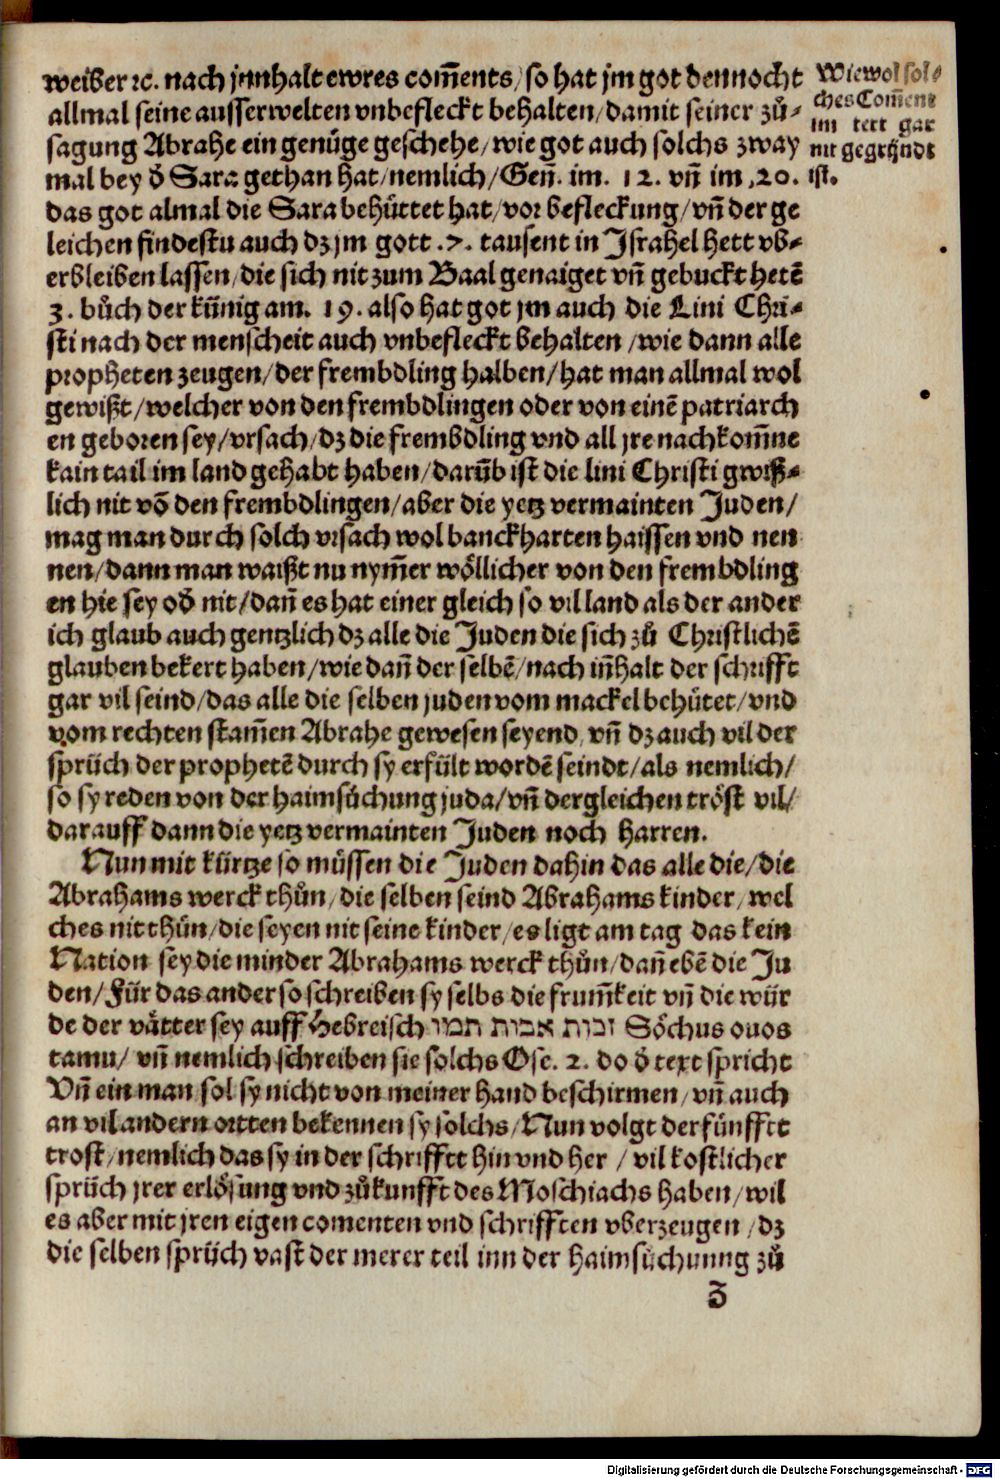 weiber ꝛc. nach jnnhalt ewres com̄ents/ so hat jm got dennocht
allmal seine ausserwelten vnbefleckt behalten/ damit seiner zů-
sagung Abrahe ein genüge geschehe/ wie got auch solchs zway
mal bey ð Sara gethan hat/ nemlich/ Gen̄. im. 12. vn̄ im .20.
das got almal die Sara behüttet hat/ vor befleckung/ vn̄ der ge
leichen findestu auch dz jm gott .7. tausent in Jsrahel hett vb-
erbleiben lassen/ die sich nit zum Baal genaiget vn̄ gebuckt hetē
3. bůch der kün̄ig am. 19. also hat got jm auch die Lini Chri-
sti nach der menscheit auch vnbefleckt behalten / wie dann alle
propheten zeugen/ der frembdling halben/ hat man allmal wol
gewißt/ welcher von den frembdlingen oder von einē patriarch
en geboren sey/ vrsach/ dz die frembdling vnd all jre nachkom̄ne
kain tail im land gehabt haben/ darūb ist die lini Christi gwiß-
lich nit vō den frembdlingen/ aber die yetz vermainten Juden/
mag man durch solch vrsach wol banckharten haissen vnd nen
nen/ dann man waißt nu nym̄er wöllicher von den frembdling
en hie sey oð nit/ dan̄ es hat einer gleich so vil land als der ander
ich glaub auch gentzlich dz alle die Juden die sich zů Christlichē
glauben bekert haben/ wie dan̄ der selbē/ nach in̄halt der schrifft
gar vil seind/ das alle die selben juden vom mackel behütet/ vnd
vom rechten stam̄en Abrahe gewesen seyend, vn̄ dz auch vil der
sprüch der prophetē durch sy erfült wordē seindt/ als nemlich/
so sy reden von der haimsůchung juda/ vn̄ dergleichen tröst vil/
darauff dann die yetz vermainten Juden noch harren.
Nun mit kürtze so müssen die Juden dahin das alle die/ die
Abrahams werck thůn/ die selben seind Abrahams kinder/ wel
ches nit thůn/ die seyen nit seine kinder/ es ligt am tag das kein
Nation sey die minder Abrahams werck thůn/ dan̄ ebē die Ju
den/ Für das ander so schreiben sy selbs die frum̄keit vn̄ die wür
de der vätter sey auff Hebreisch זכות אבות תמו Söchus ouos
tamu/ vn̄ nemlich schreiben sie solchs Ose. 2. do ð text spricht
Vn̄ ein man sol sy nicht von meiner hand beschirmen/ vn̄ auch
an vil andern ortten bekennen sy solchs/ Nun volgt der fünfft
trost/ nemlich das sy in der schrifft hin vnd her / vil kostlicher
sprüch jrer erlösung vnd zůkunfft des Moschiachs haben/ wil
es aber mit jren eigen comenten vnd schrifften vberzeugen / dz
die selben sprüch vast der merer teil inn der haimsůchung zů
З
Wiewol sol-
ches Com̄ent
im text gar
nit gegründt
ist.
Digitalisierung gefördert durch die Deutsche Forschungsgemeinschaft - DFG